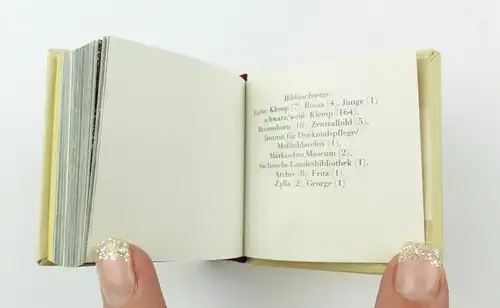 Bildnachweis:
Farbe: Klemp (7), Bossa (4), Junge (1)
schwarz/weiß: Klemp (164),
(10), Zentralbild (5),
Institut für Denkmalspflege/
Meßbildarchiv (1),
Märkisches Museum (2),
Sächsische Landesbibliothek (1),
Archiv (8), Fritz (1),
Zylla (2), George (1)